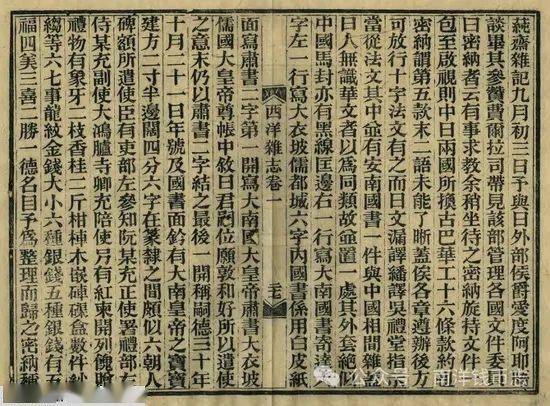 蒓齋雜記九月初三日予與日外部侯爵愛度阿耶
談畢其參贊費爾拉司帶見該部管理各國文件委
曰密納者云有事求教余稍坐待之密納旋持文件
包至啟視則中日兩國所換古巴華工十六條款約
密納謂第五款末二語未能了晰蓋俟各章遵辦後方
可放行十字法文有之而日文漏譯繙譯吳禮堂指
當從法文其中並有安南國書一件與中國相間雜蓋
日人無識華文者以為同類故並置一處其外套絕似
中國馬封亦有黑線匡邊右一行寫大南國書寄達六
字左一行寫大衣坡儒都城六字內國書係用白皮紙
西洋雜志卷一
面寫肅書二字第一開寫大南國大皇帝肅書大衣坡
儒國大皇帝尊帳中敘曰君位願敦和好所以遣使
之意末仍以肅書二字結之最後一開稱嗣德三十年
十月二十一日年號書面鈐有大南皇帝之寶寶
建方二寸半邊闊四分六字在篆隸之間頗似六朝人
碑額所遣使臣有吏部左參知阮某充正使署禮部左
侍某充副使大鴻臚寺卿充陪使另有紅柬開列贈
禮物有象牙二枝香桂二斤柑棹木嵌硨磲盒數件紗
縐等六七事龍紋金錢大小六種銀錢五種銀錢有五
福四美三喜二勝一德名目予為整理而歸之密納稱
公众号 · 南洋钱币志